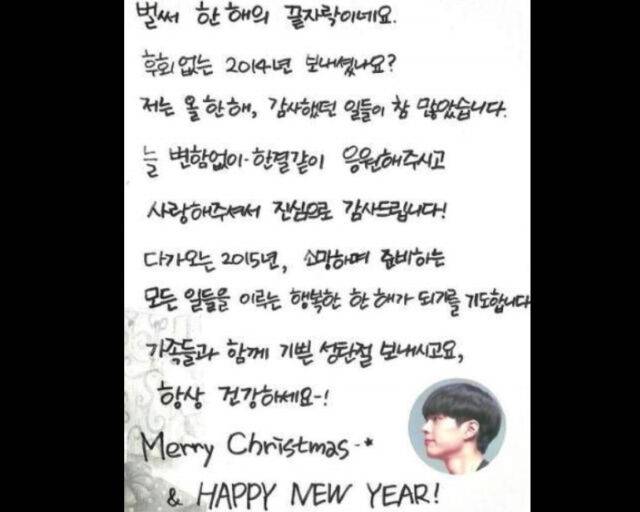 벌써 한 해의 끝자락이네요.
후회없는 2014년 보내셨나요?
저는 올 한 해, 감사했던 일들이 참 많았습니다.
늘 변함없이 한결같이 응원해주시고
사랑해주셔서 진심으로 감사드립니다!
다가오는 2015년, 소망하며 준비하는
모든 일들을 이루는 행복한 한 해가 되기를 기도합니다
가족들과 함께 기쁜 성탄절 보내시고요,
항상 건강하세요~!
Merry Christmas~*
& HAPPY NEW YEAR!